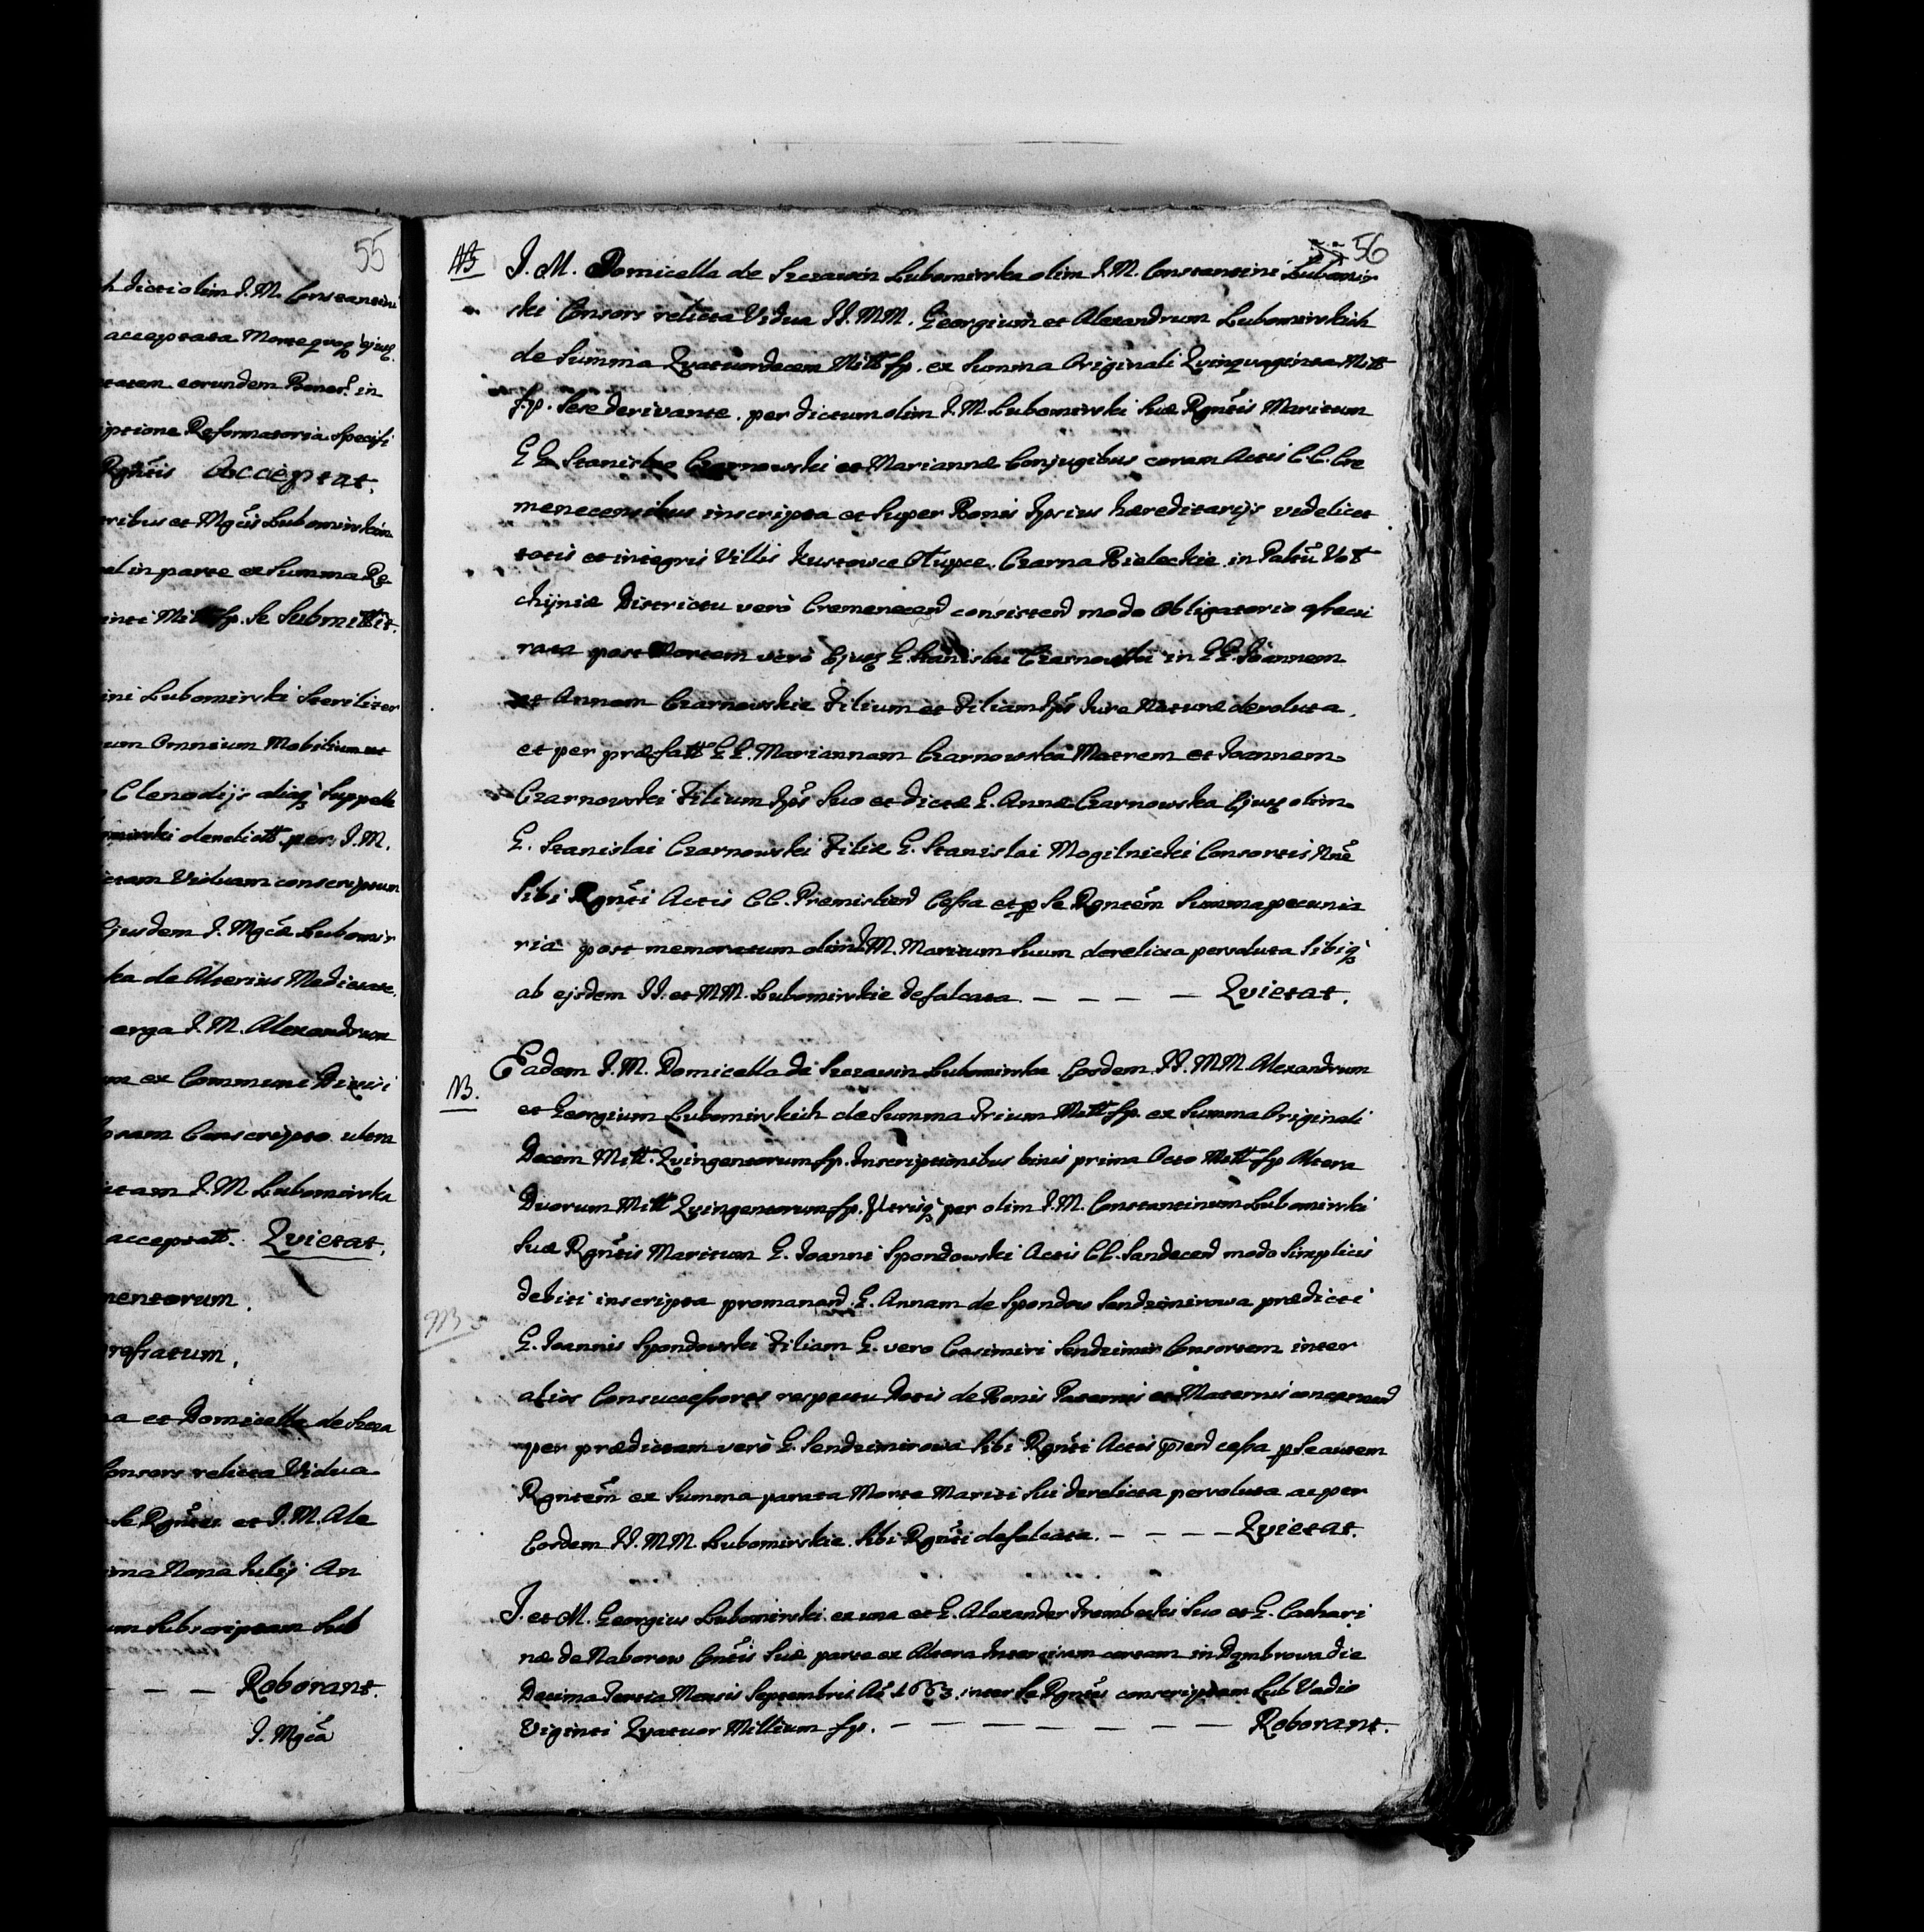 55
h dicti olim J. M. Constantini
acceptata Morteq; ejusq;
tatem eorundem Bonor. in
iptione Reformatoria Specifi
Rgntis Acceptat.
ribus et Mgcis Lubomirskim
el in parte ex Summa Re
inti Mill fp. se Submittit.
ini Lubomirski Steriliter
um Omnium Mobilium et
Clenodijs alijsq; Suppelle
mirski derelictt. per J. M.
ctam Viduam conscriptum
Ejusdem J. Mgcæ Lubomir
ka de Alterius Medietate.
erga J. M. Alexandrum
m ex Communi Divisi
oram Conscripto
ctam J. M. Lubomirska
acceptatt. Qvietat.
mentorum.
refiatum.
a et Domicella de Szcza
Consors relicta Vidua
Se Rgntes et J. M. Ale
ima Nona Julij An
um Subscriptam Sub
— — Roborant.
J. Mgca
56
NB J. M. Domicella de Szczawin Lubomirska olim J. M. Constantini Lubomir
ski Consors relicta Vidua JJ. MM. Georgium et Alexandrum Lubomirskich
de Summa Qvatuordecem Mill fp. ex Summa Originali Qvinquaginta Mill
fp. Sese derivante. per dictum olim J. M. Lubomirski Suæ Rgntis Maritum
GG Stanislao Czarnowski et Mariannæ Conjugibus coram Actis CC. Cre
menecensibus inscripta et Super Bonis Ipsius hæreditarijs videlicet
totis et integris Villis Kustowce Czarna Bieleckie in Paltu Vol
chyniæ Districtu verò Cremenecen consisten modo Obligatorio assecu
rata post Mortem verò Ejusq; G. Stanislai Czarnowski in GG. Joannem
et Annam Czarnowskie Filium et Filiam Ips Jure Naturæ devoluta.
et per præfatt GG. Mariannam Czarnowska Matrem et Joannem
Czarnowski Filium Ips Suo et dictæ G. Annæ Czarnowska Ejusq; olim
G. Stanislai Czarnowski Filiæ G. Stanislai Mogilnicki Consortis Nne
Sibi Rgnti Actis CC. Premislien Cessa et p Se Rgntem Summa pecunia
ria post memoratum olim J. M. Maritum Suum derelicta persoluta Sibiq;
ab ejsdem JJ. et MM. Lubomirskie defalcata — — — — Qvietat.
NB. Eadem J. M. Domicella de Szczawin Lubomirska Eosdem JJ. MM. Alexandrum
et Georgium Lubomirskich de Summa Trium Mill fp. ex Summa Originali
Decem Mill. Qvingentorum fp. Inscriptionibus binis prima Octo Mill fp Altera
Duorum Mill Qvingentorum fp. Utrisq; per olim J. M. Constantinum Lubomirski
Suæ Rgntis Maritum G. Joanni Spondowski Actis CC. Sandecen modo Simplicis
debiti inscripta promanan. G. Annam de Spondow Sendzimirowa prædicti
NB G. Joannis Spondowski Filiam G. vero Casimiri Sendzimir Consortem inter
alios Consuccessores respectu Dotis de Bonis Paternis et Maternis concernen
per prædictam verò G. Sendzimirowa Sibi Rgnti Actis pren cessa p Se autem
Rgntem ex Summa parata Morte Mariti Sui derelicta persoluta ac per
Eosdem JJ. MM. Lubomirskie Sibi Rgnti defalcata. — — — — Qvietat.
J. et M. Georgius Lubomirski ex una et G. Alexander Trembecki Suo et G. Cathari
næ de Naborow Cntis Suæ parte ex Altera Intercisam certam in Dąmbrowa die
Decima Tertia Mensis Septembris Ao 1663. inter Se Rgntes conscriptam Sub Vadio
Viginti Qvatuor Millium fp. — — — — — — — Roborant.